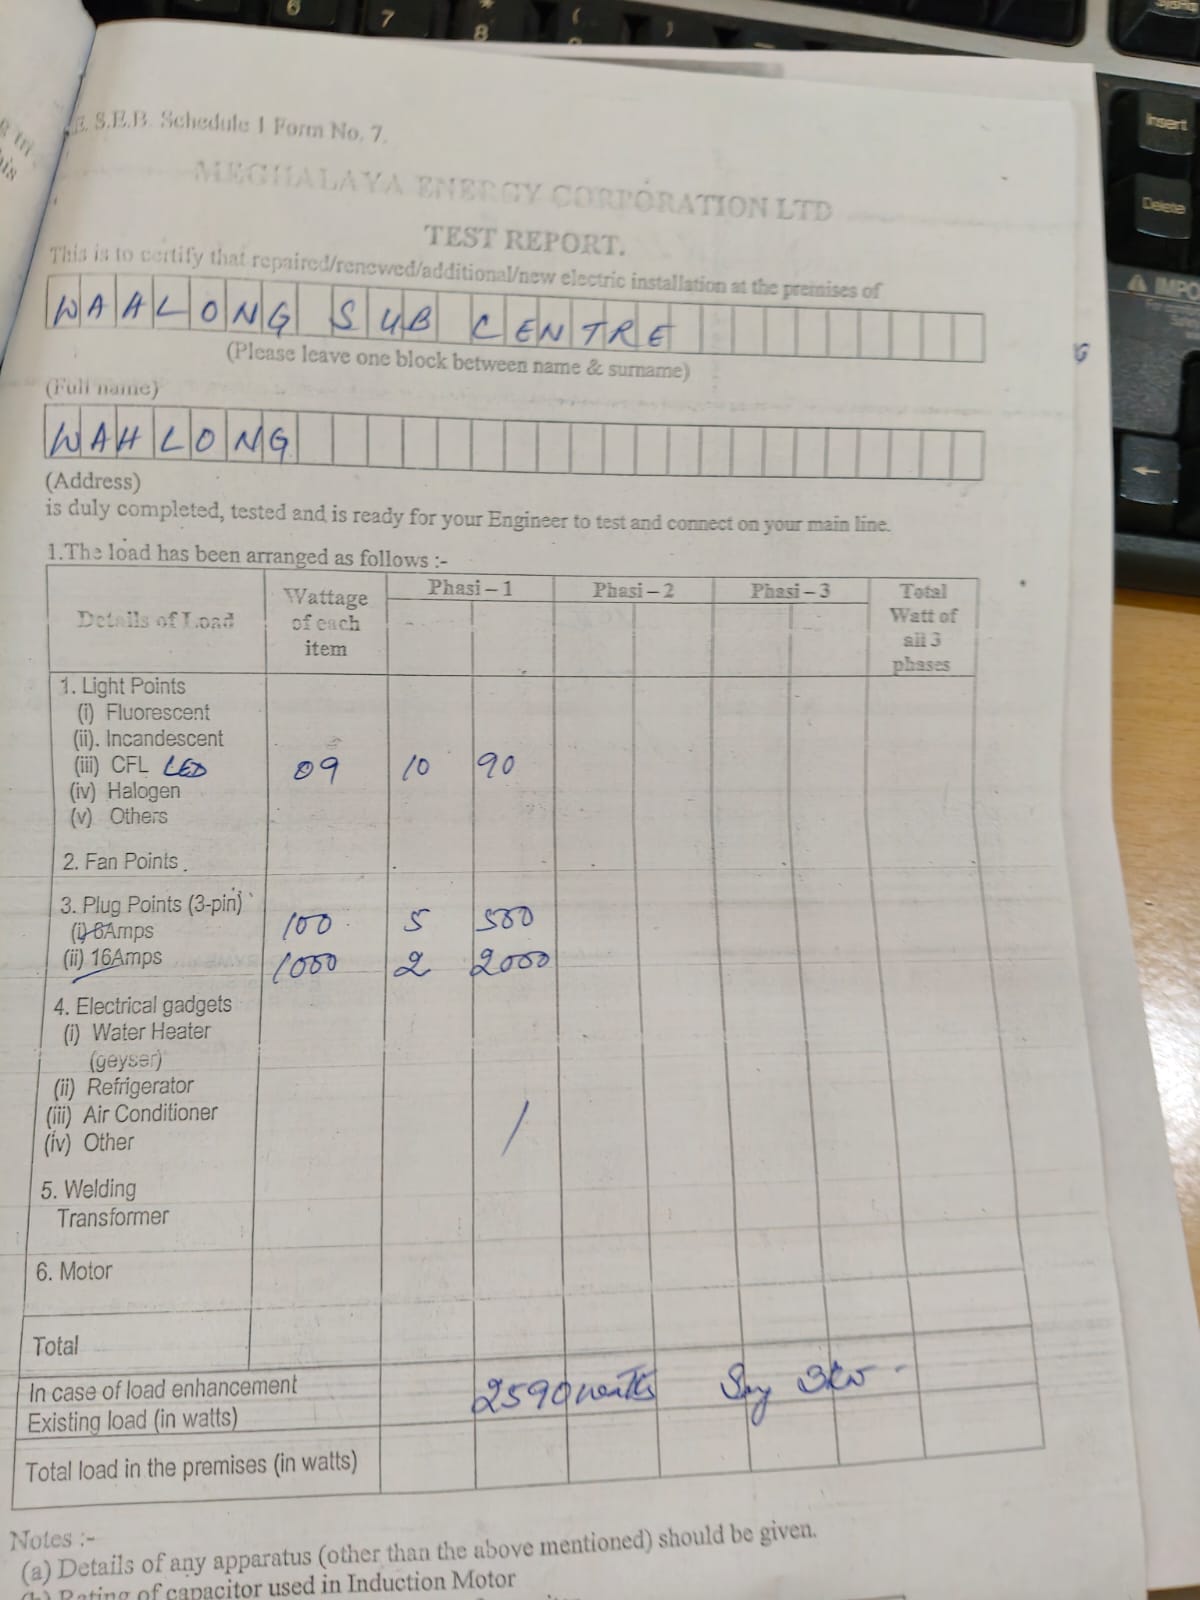 6
7
8
Insert
Delete
IMPO
S.E.B. Schedule 1 Form No. 7.
MEGHALAYA ENERGY CORPORATION LTD
TEST REPORT.
This is to certify that repaired/renewed/additional/new electric installation at the premises of
WAHLONG SUB CENTRE
(Please leave one block between name & surname)
(Full name)
WAHLONG
(Address)
is duly completed, tested and is ready for your Engineer to test and connect on your main line.
1.The load has been arranged as follows :-
Details of Load Wattage of each item Phasi – 1 Phasi – 2 Phasi – 3 Total Watt of all 3 phases
1. Light Points
(i) Fluorescent
(ii). Incandescent
(iii) CFL LED 09 10 90
(iv) Halogen
(v) Others
2. Fan Points
3. Plug Points (3-pin)
(i) 6Amps 100 5 500
(ii) 16Amps 1000 2 2000
4. Electrical gadgets
(i) Water Heater
(geyser)
(ii) Refrigerator
(iii) Air Conditioner
(iv) Other
5. Welding
Transformer
6. Motor
Total
In case of load enhancement
Existing load (in watts) 2590 watts Say 3kw -
Total load in the premises (in watts)
Notes :-
(a) Details of any apparatus (other than the above mentioned) should be given.
(b) Rating of capacitor used in Induction Motor